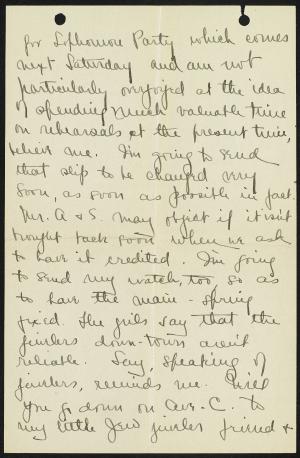 for Sophomore Party which comes
next Saturday and am not
particularly overjoyed at the idea
of spending much valuable time
on rehearsals at the present time,
believe me. I'm going to send
that slip to be changed very
soon, as soon as possible in fact.
Mr. A & S. may object if it isn't
brought back soon when we ask
to have it credited. I'm going
to send my watch, too so as
to have the main-spring
fixed. The girls say that the
jewlers down-town aren't
reliable. Say, speaking of
jewlers, reminds me. Will
you go down on Ave. C. to
my little Jew jewler friend &